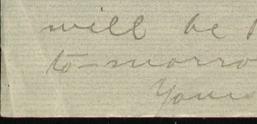 will be
to-morro
Yours